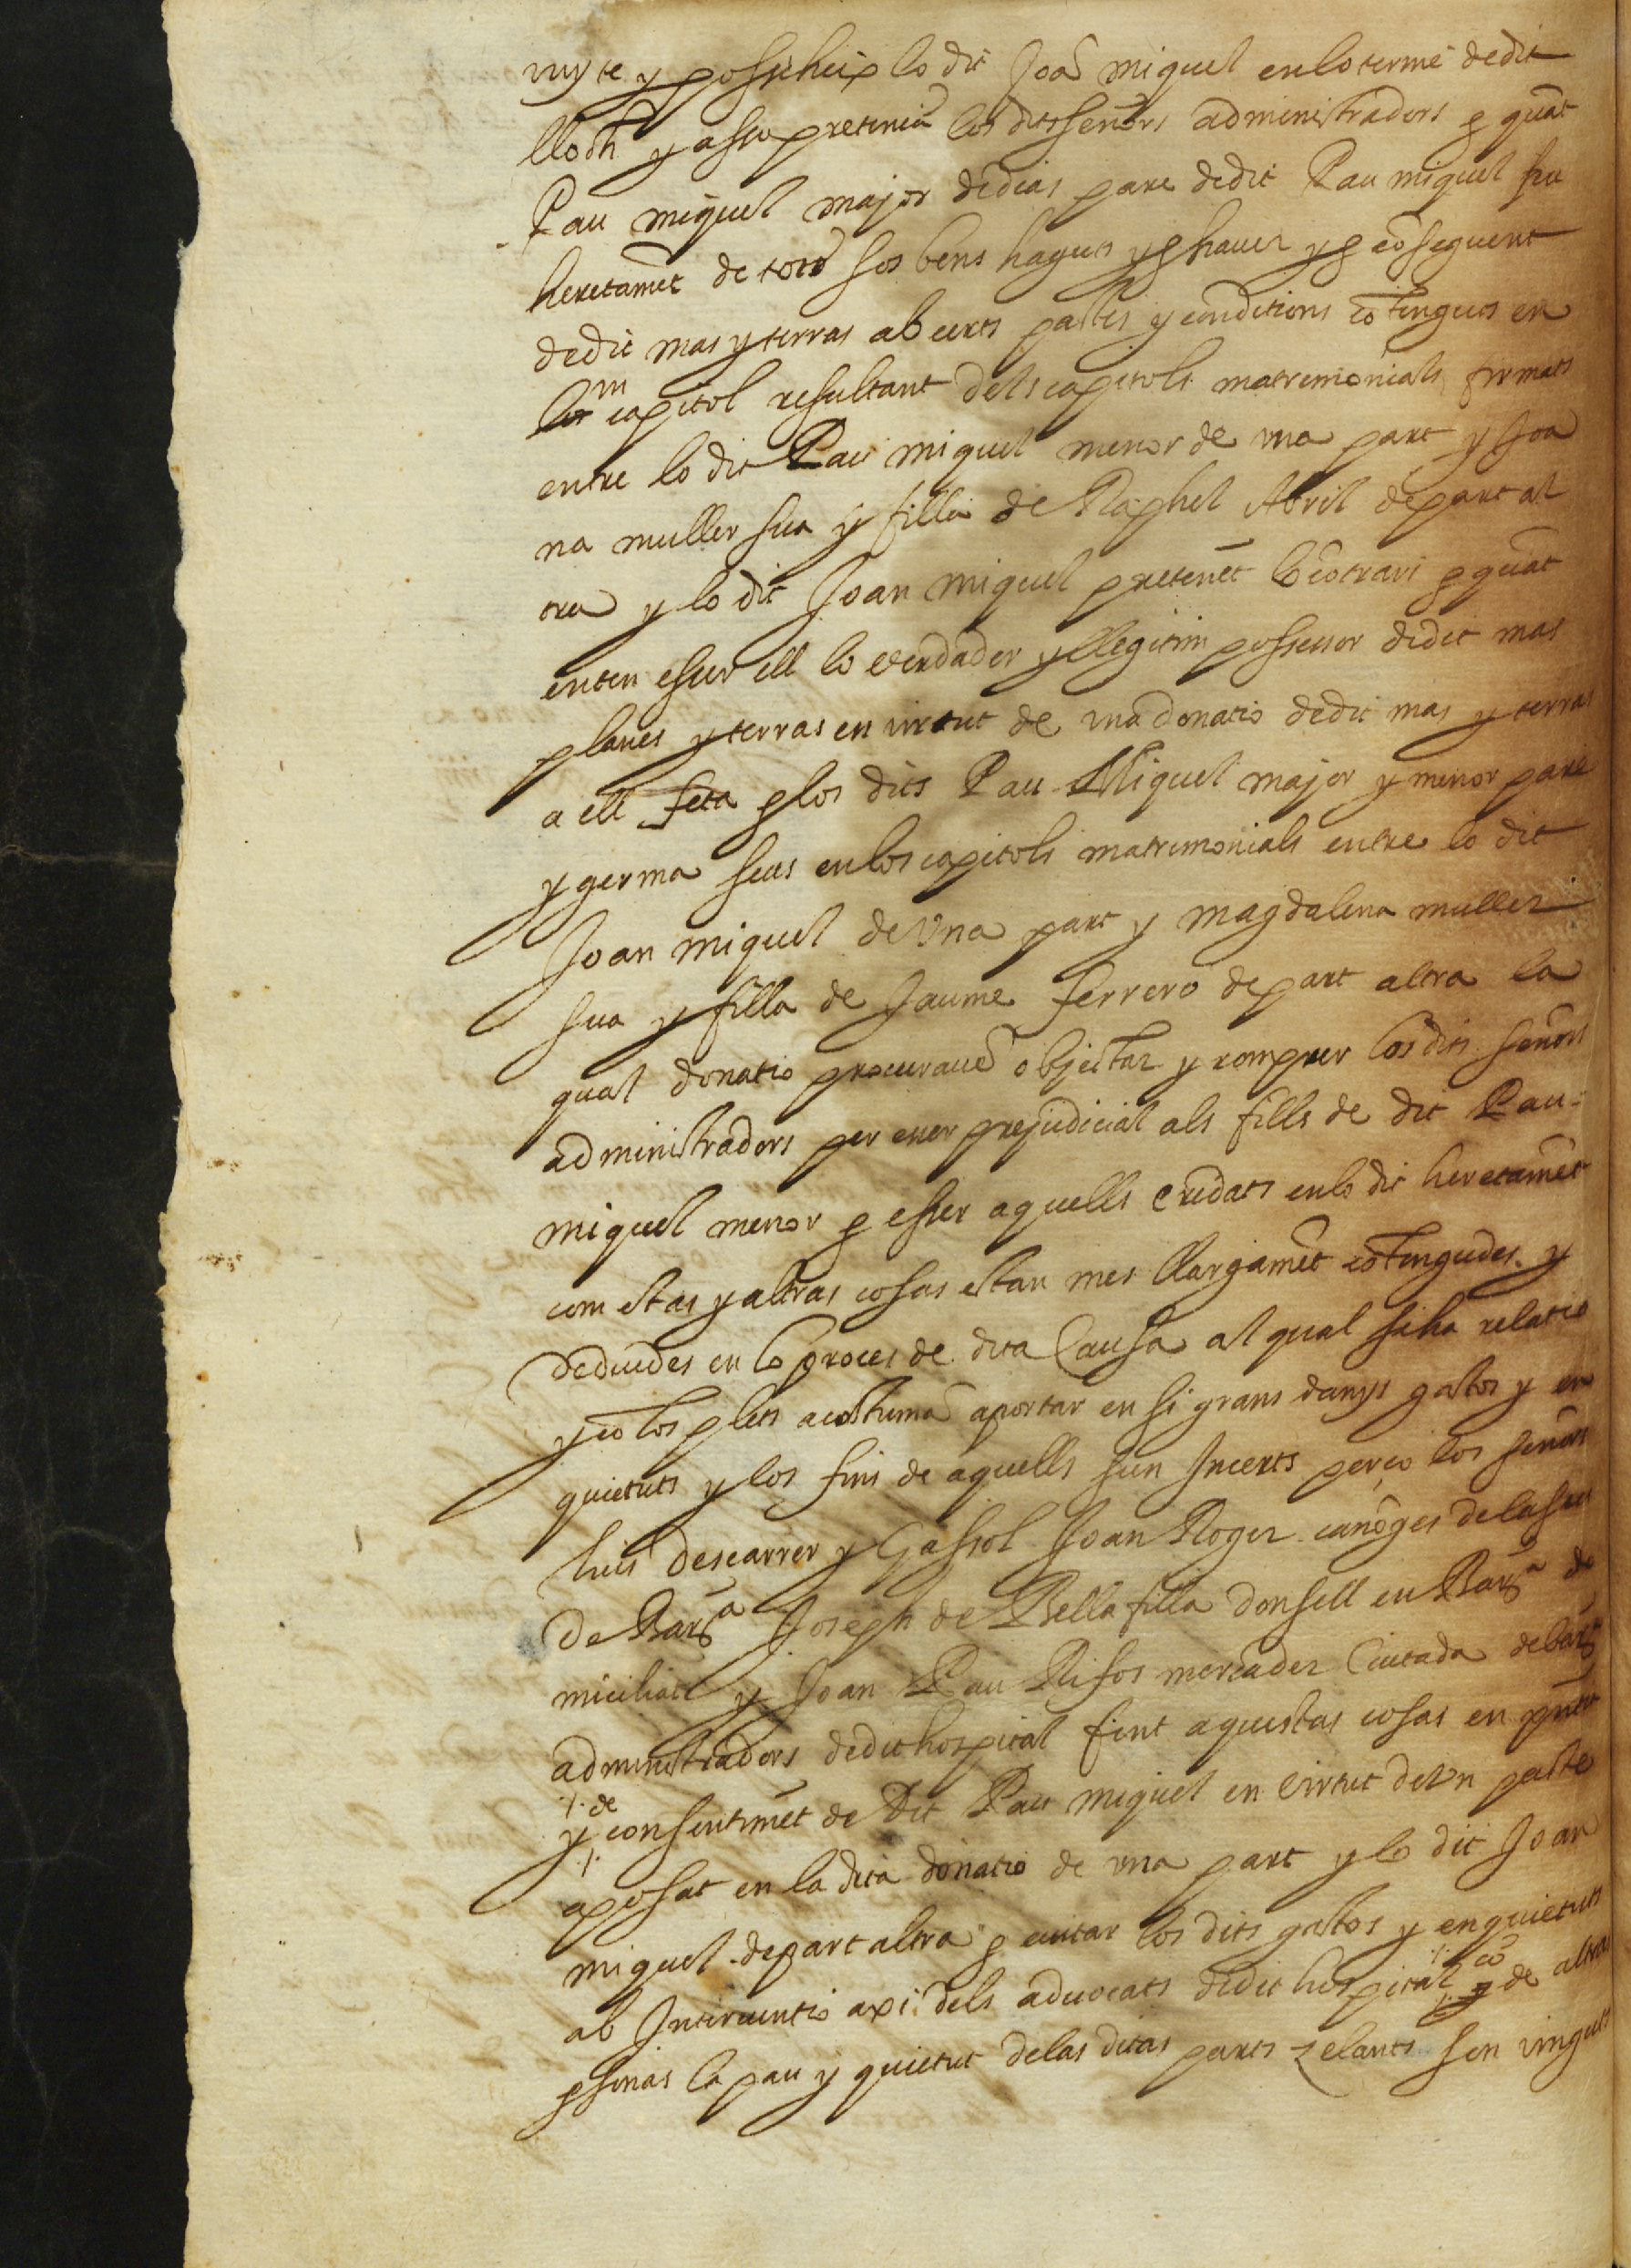 vuy te y possiheix lo dit Joã miquel en lo terme de dit
lloch y asso pretenia los dits señors administradors ꝑ quãt
Pau miquel major de dias pare de dit Pau miquel feu
heretamẽt de tots sos bens haguts y ꝑ haver y ꝑ cõseguent
de dit mas y terras ab certs pactes y conditions cõtinguts en
lo capitol resultant dels capitols matrimonials firmats
entre lo dit Pau miquel menor de vna part y Joa
na muller sua y filla de Raphel Abril de part al
tra y lo dit Joan miquel pretenẽt lo cõtrari ꝑ quãt
enten esser ell lo verdader y llegitim possessor de dit mas
planes y terras en virtut de vna donatio de dit mas y terras
a ell feta ꝑ los dits Pau Miquel major y menor pare
y germa seus en los capitols matrimonials entre lo dit
Joan miquel de vna part y magdalena muller
sua y filla de Jaume ferrero de part altra la
qual donatio procurauẽ objectar y romprer los dits señors
administradors per esser prejudicial als fills de dit Pau
miquel menor ꝑ esser aquells cridats en lo dit heretamẽt
com estas y altras cosas estan mes llargamẽt cõtingudes y
deduides en lo proces de dita Causa al qual se ha relatio
y cõ los plets acostumã aportar en si grans danys gastos y en
quietuts y los fins de aquells sien Incerts perço los señors
Luis descarrer y Gassol Joan Roger canõges de la seu
de Barᵃ Joseph de Bellafilla donsell en Barᵃ do
miciliat y Joan Pau Rifos mercader Ciutada de Barᵃ
administradors de dit hospital fent aquestas cosas en pñtia
y de consentimẽt de dit Pau miquel en virtut de vn pacte
aposat en la dita donatio de vna part y lo dit Joan
miquel de part altra ꝑ euitar los dits gastos y enquietuts
ab Interuentio axi dels aduocats de dit hospital cõ de altras
ꝑsonas la pau y quietut de las ditas parts zelants son vinguts